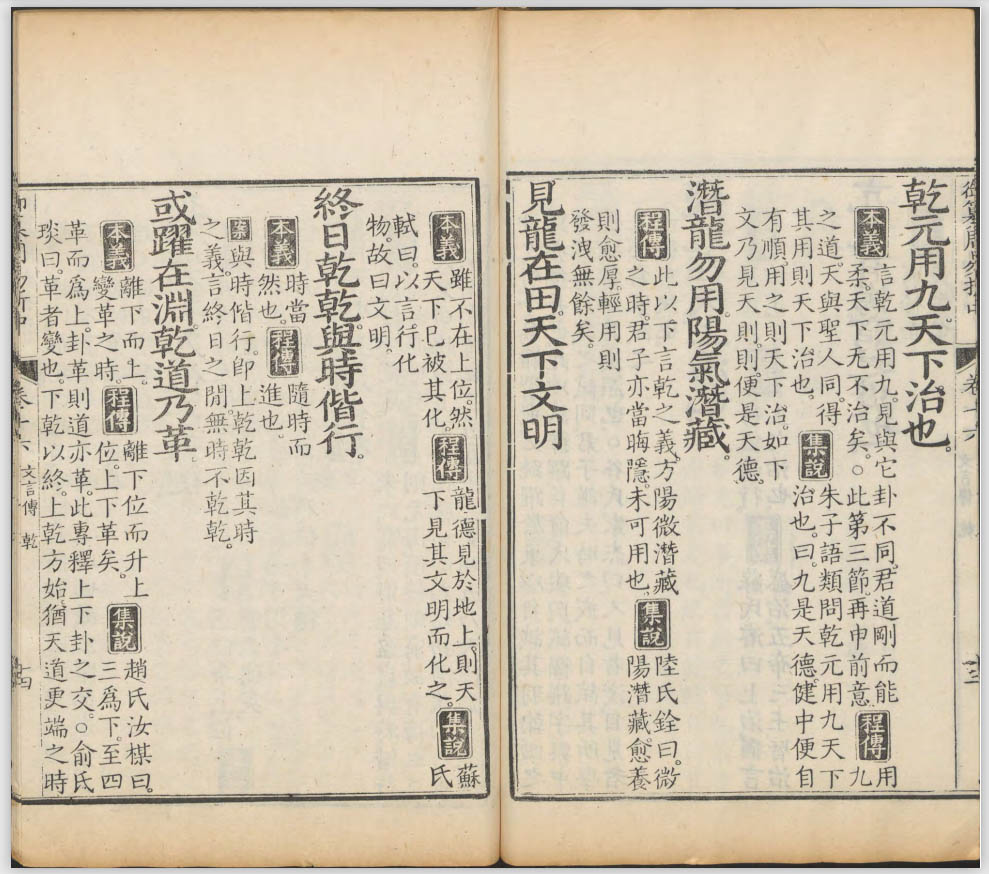 乾元用九。天下治也。
本義 言乾元用九。見與它卦不同。君道剛而能
柔。天下无不治矣。○此第三節。再申前意。
程傳 用九
之道。天與聖人同。得
其用則天下治也。
集說 朱子語類問乾元用九天下
治也。曰。九是天德。健中便自
有順。用之則天下治。如下
文乃見天則。則便是天德。
潛龍勿用。陽氣潛藏。
程傳 此以下言乾之義。方陽微潛藏
之時。君子亦當晦隱。未可用也。
集說 陸氏銓曰。微
陽潛藏。愈養
則愈厚。輕用則
發洩無餘矣。
見龍在田。天下文明
本義 雖不在上位。然
天下已被其化。
程傳 龍德見於地上。則天
下見其文明而化之。
集說 蘇氏
軾曰。以言行化
物。故曰文明。
終日乾乾。與時偕行。
本義 時當
然也。
程傳 隨時而
進也。
案 與時偕行。即上乾乾因其時
之義。言終日之閒。無時不乾乾。
或躍在淵。乾道乃革
本義 離下而上。
變革之時。
程傳 離下位而升上
位。上下革矣。
集說 趙氏汝楳曰。
三爲下。至四
革而爲上。卦革則道亦革。此專釋上下卦之交。○俞氏
琰曰。革者變也。下乾以終。上乾方始。猶天道更端之時
卷十六
文言傳 乾
十四